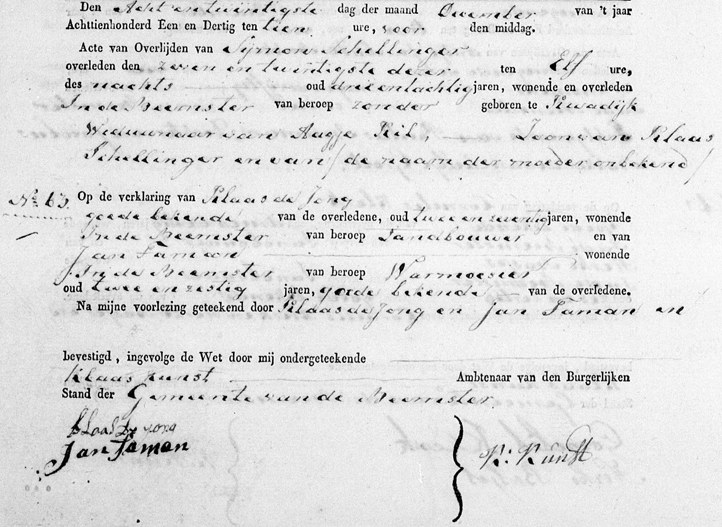 Den Acht en twintigste dag der maand December van 't jaar
Achttienhonderd Een en Dertig ten tien ure, voor den middag.
Acte van Overlijden van Sijmon Schellinger
overleden den zeven en twintigste dezer ten Elf ure,
des nachts oud drie en tachtig jaren, wonende en overleden
In de Beemster van beroep zonder geboren te Kwadijk
Weduwnaar van Aagje Kil, Zoon van Klaas
Schellinger en van / de naam der moeder onbekend /
No 63 Op de verklaring van Klaas de Jong
goede bekende van de overledene, oud twee en zeventig jaren, wonende
In de Beemster van beroep Landbouwer en van
Jan Taman wonende
In de Beemster van beroep Warmoesier
oud twee en zestig jaren, goede bekende van de overledene.
Na mijne voorlezing geteekend door Klaas de Jong en Jan Taman en
bevestigd, ingevolge de Wet door mij ondergeteekende
Klaas Kunst Ambtenaar van den Burgerlijken
Stand der Gemeente van de Beemster
Klaas de Jong
Jan Taman
K: Kunst